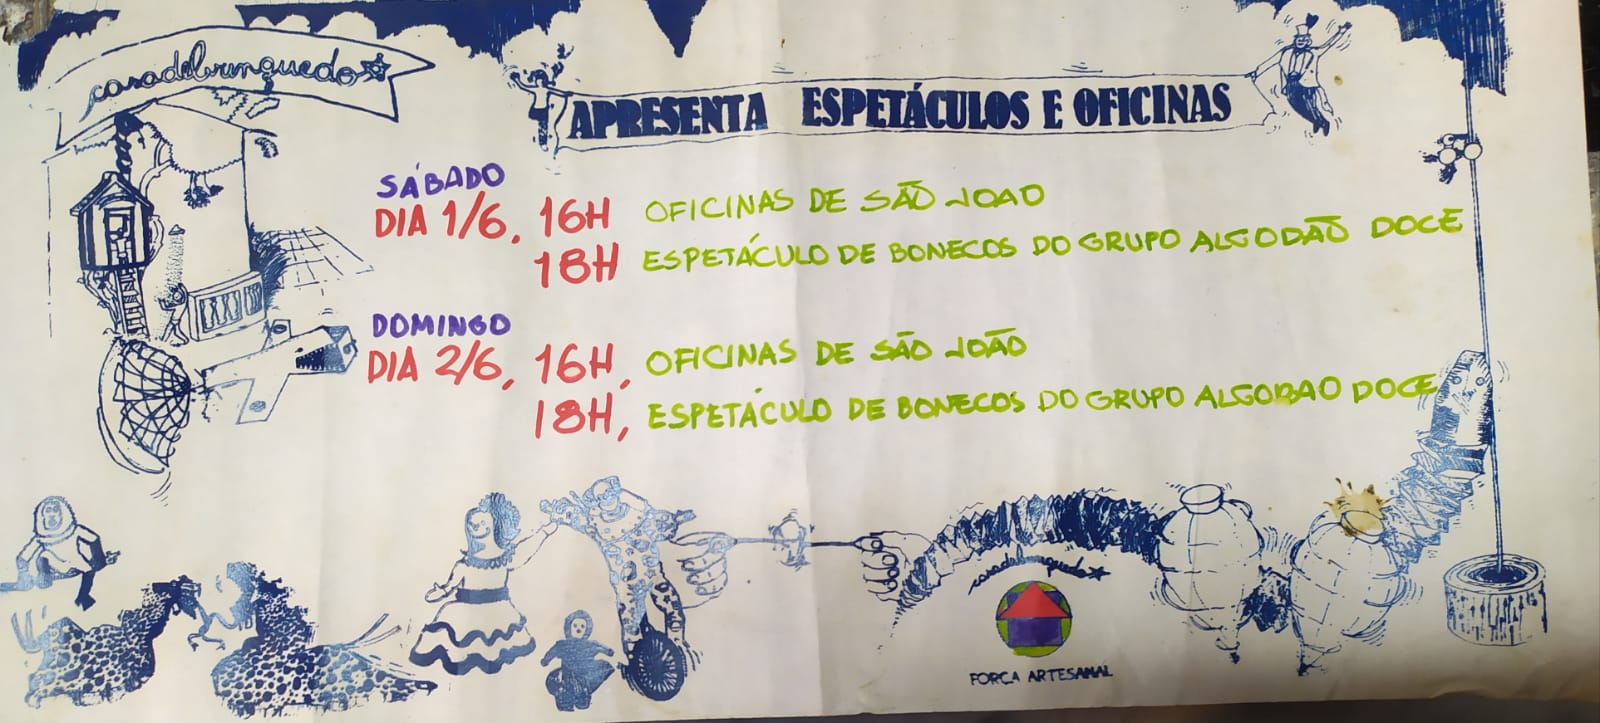 casadebrinquedo
APRESENTA ESPETÁCULOS E OFICINAS
SÁBADO
DIA 1/6, 16H OFICINAS DE SÃO JOAO
18H ESPETÁCULO DE BONECOS DO GRUPO ALGODÃO DOCE
DOMINGO
DIA 2/6, 16H, OFICINAS DE SÃO JOÃO
18H, ESPETÁCULO DE BONECOS DO GRUPO ALGODAO DOCE
casadebrinquedo
FORÇA ARTESANAL